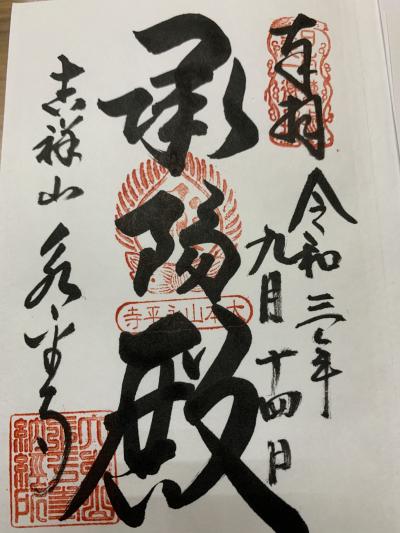 奉拝
令和三年
九月十四日
承陽殿
大本山永平寺
吉祥山永平寺